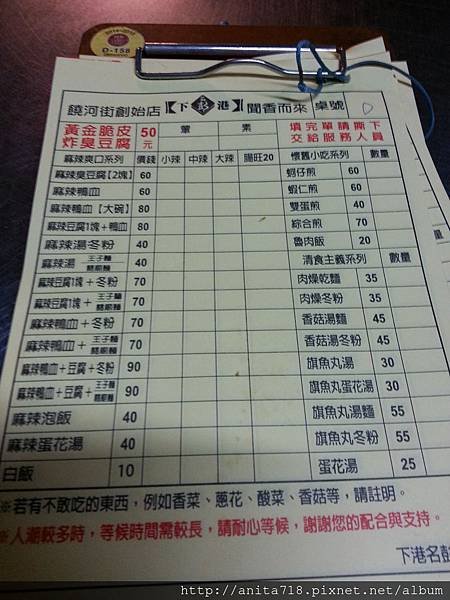 D-158
饒河街創始店【下港】聞香而來 桌號
黃金脆皮炸臭豆腐 50元 葷 素 填完單請撕下交給服務人員
麻辣爽口系列 價錢 小辣 中辣 大辣 腸旺20 懷舊小吃系列 數量
麻辣臭豆腐【2塊】 60 蚵仔煎 60
麻辣鴨血 60 蝦仁煎 60
麻辣鴨血【大碗】 80 雙蛋煎 40
麻辣豆腐1塊+鴨血 80 綜合煎 70
麻辣湯冬粉 40 魯肉飯 20
麻辣湯 王子麵 40 清食主義系列 數量
麻辣豆腐1塊+冬粉 70 肉燥乾麵 35
麻辣豆腐1塊+王子麵 70 肉燥冬粉 35
麻辣鴨血+冬粉 70 香菇湯麵 45
麻辣鴨血+王子麵 70 香菇湯冬粉 45
麻辣鴨血+豆腐+冬粉 90 旗魚丸湯 30
麻辣鴨血+豆腐+王子麵 90 旗魚丸蛋花湯 30
麻辣泡飯 40 旗魚丸湯麵 55
麻辣蛋花湯 40 旗魚丸冬粉 55
白飯 10 蛋花湯 25
※若有不敢吃的東西，例如香菜、蔥花、酸菜、香菇等，請註明。
※人潮較多時，等候時間需較長，請耐心等候，謝謝您的配合與支持。
下港名彭
http://anita718.pixnet.net/album